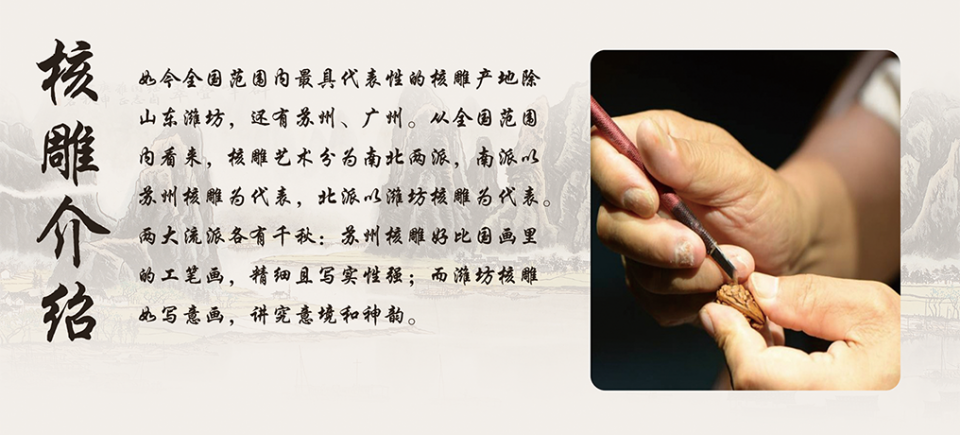 核雕介绍
如今全国范围内最具代表性的核雕产地除
山东潍坊，还有苏州、广州。从全国范围
内看来，核雕艺术分为南北两派，南派以
苏州核雕为代表，北派以潍坊核雕为代表。
两大流派各有千秋：苏州核雕好比国画里
的工笔画，精细且写实性强；而潍坊核雕
如写意画，讲究意境和神韵。